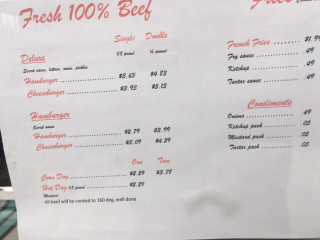 Fresh 100% Beef
Single Double
Deluxe 1/3 pound
Hamburger $3.63 $4.83
Cheeseburger $3.93 $5.13
Hamburger
Hamburger $2.79 $3.99
Cheeseburger $3.09 $4.29
One Two
Corn Dog $2.29 $3.78
Hot Dog 1/3 pound $2.29
Mustard
All beef will be cooked to 160 deg, well done
French Fries $1.9
Fry sauce .49
Ketchup .49
Tartar sauce .49
Condiments
Onions .49
Ketchup pack .05
Mustard pack .05
Tartar pack .05